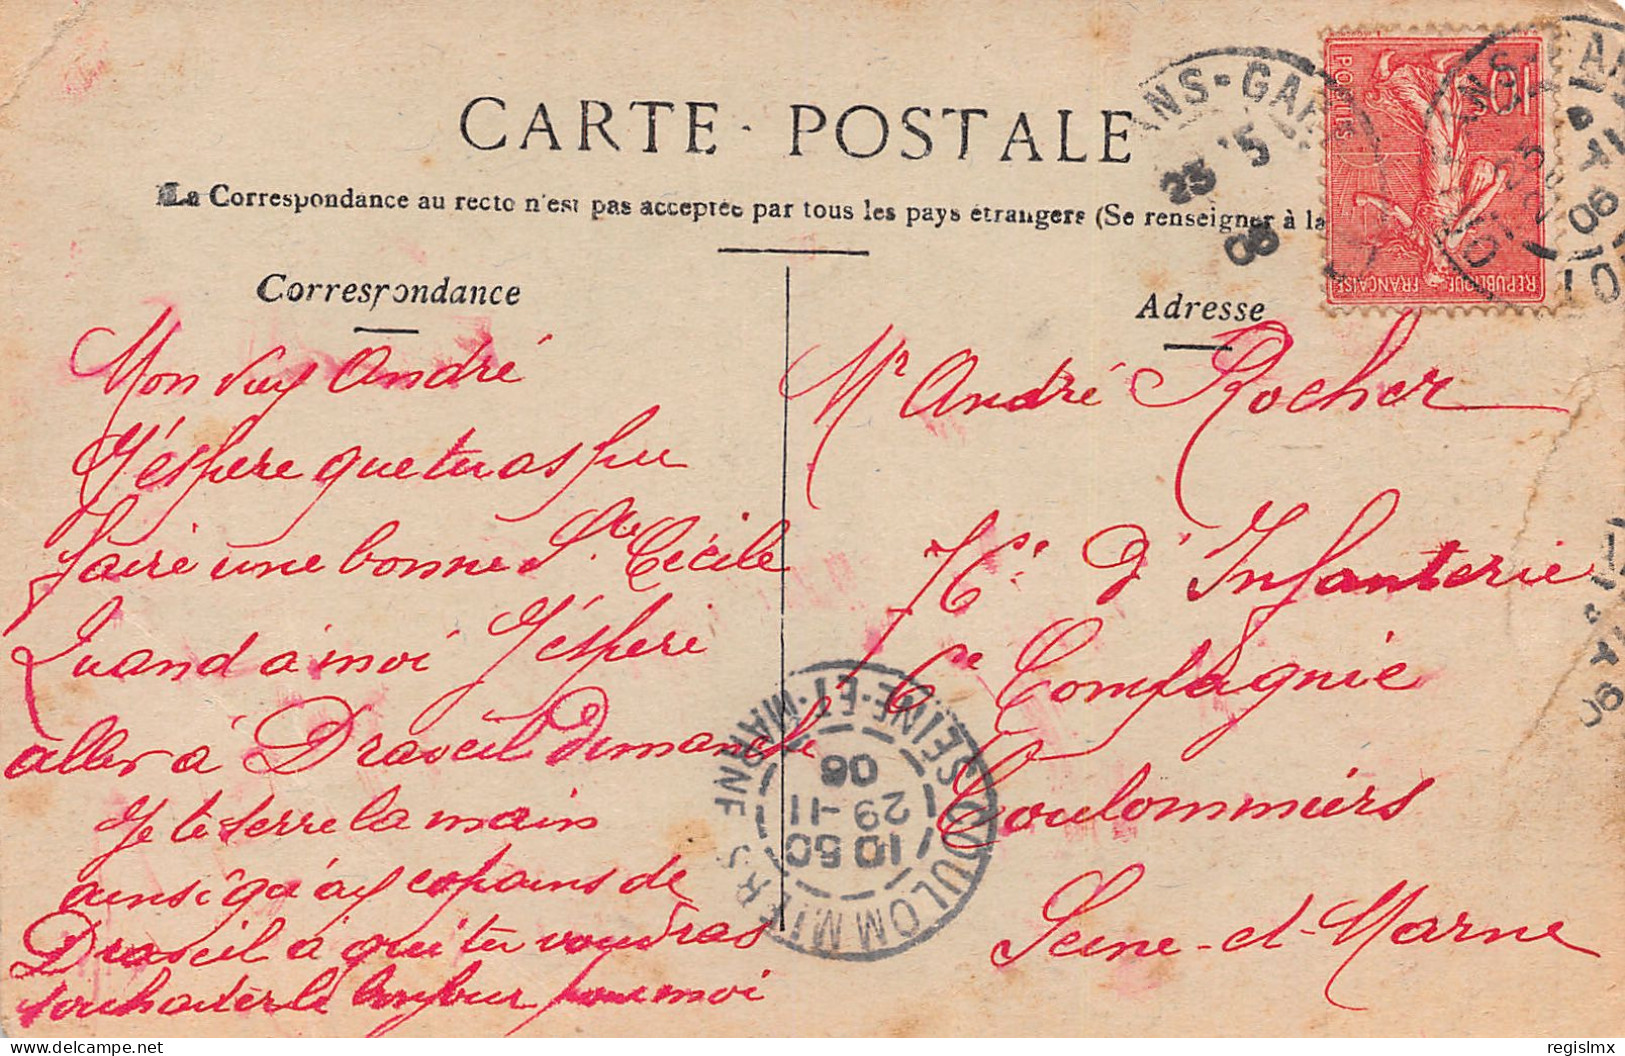 CARTE POSTALE
La Correspondance au recto n'est pas acceptée par tous les pays étrangers (Se renseigner à la
Correspondance
Mon vieux André
J'éspère que tu as pu
faire une bonne Ste Cécile
Quand à moi J'éspère
aller à Draveil dimanche
Je te serre la main
ainsi qu'au copains de
Draveil à qui tu voudras
souhaiter le bonjour pour moi
Adresse
Mr André Rocher
d'Infanterie
6e Compagnie
Coulommiers
Seine-et-Marne
ANS-GAR
23 5
06
POSTES
10
REPUBLIQUE FRANÇAISE
COULOMMIERS
SEINE-ET-MARNE
10 50
29-11
06
regislmx